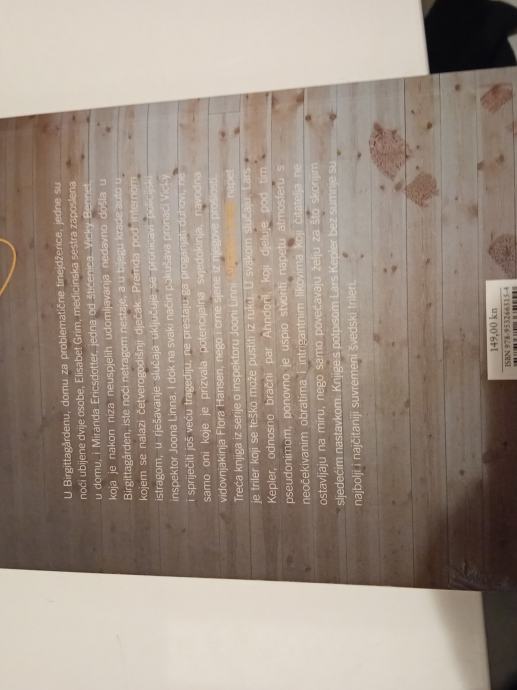 U Birgittagårdenu, domu za problematične tinejdžerice, jedne su
noći ubijene dvije osobe, Elisabet Grim, medicinska sestra zaposlena
u domu, i Miranda Ericsdotter, jedna od štićenica. Vicky Bennet,
koja je nakon niza neuspjelih udomljavanja nedavno došla u
Birgittagården, iste noći netragom nestaje, a u bijegu krade auto u
kojem se nalazi četverogodišnji dječak. Premda pod internom
istragom, u rješavanje slučaja uključuje se pronicavi policijski
inspektor Joona Linna. I dok na svaki način pokušava pronaći Vicky
i spriječiti još veću tragediju, ne prestaju ga proganjati duhovi, ne
samo oni koje je prizvala potencijalna svjedokinja, navodna
vidovnjakinja Flora Hansen, nego i crne sjene iz njegove prošlosti.
Treća knjiga iz serije o inspektoru Jooni Linni napet
je triler koji se teško može pustiti iz ruku. U svakom slučaju Lars
Kepler, odnosno bračni par Ahndoril koji djeluje pod tim
pseudonimom, ponovno je uspio stvoriti napetu atmosferu s
neočekivanim obratima i intrigantnim likovima koji čitatelja ne
ostavljaju na miru, nego samo povećavaju želju za što skorijim
sljedećim nastavkom. Knjige s potpisom Lars Kepler bez sumnje su
najbolji i najčitaniji suvremeni švedski trileri.
149,00 kn